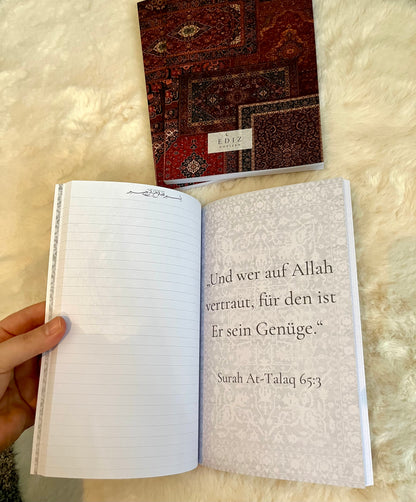 EDIZ
„Und wer auf Allah
vertraut, für den ist
Er sein Genüge.“
Surah At-Talaq 65:3